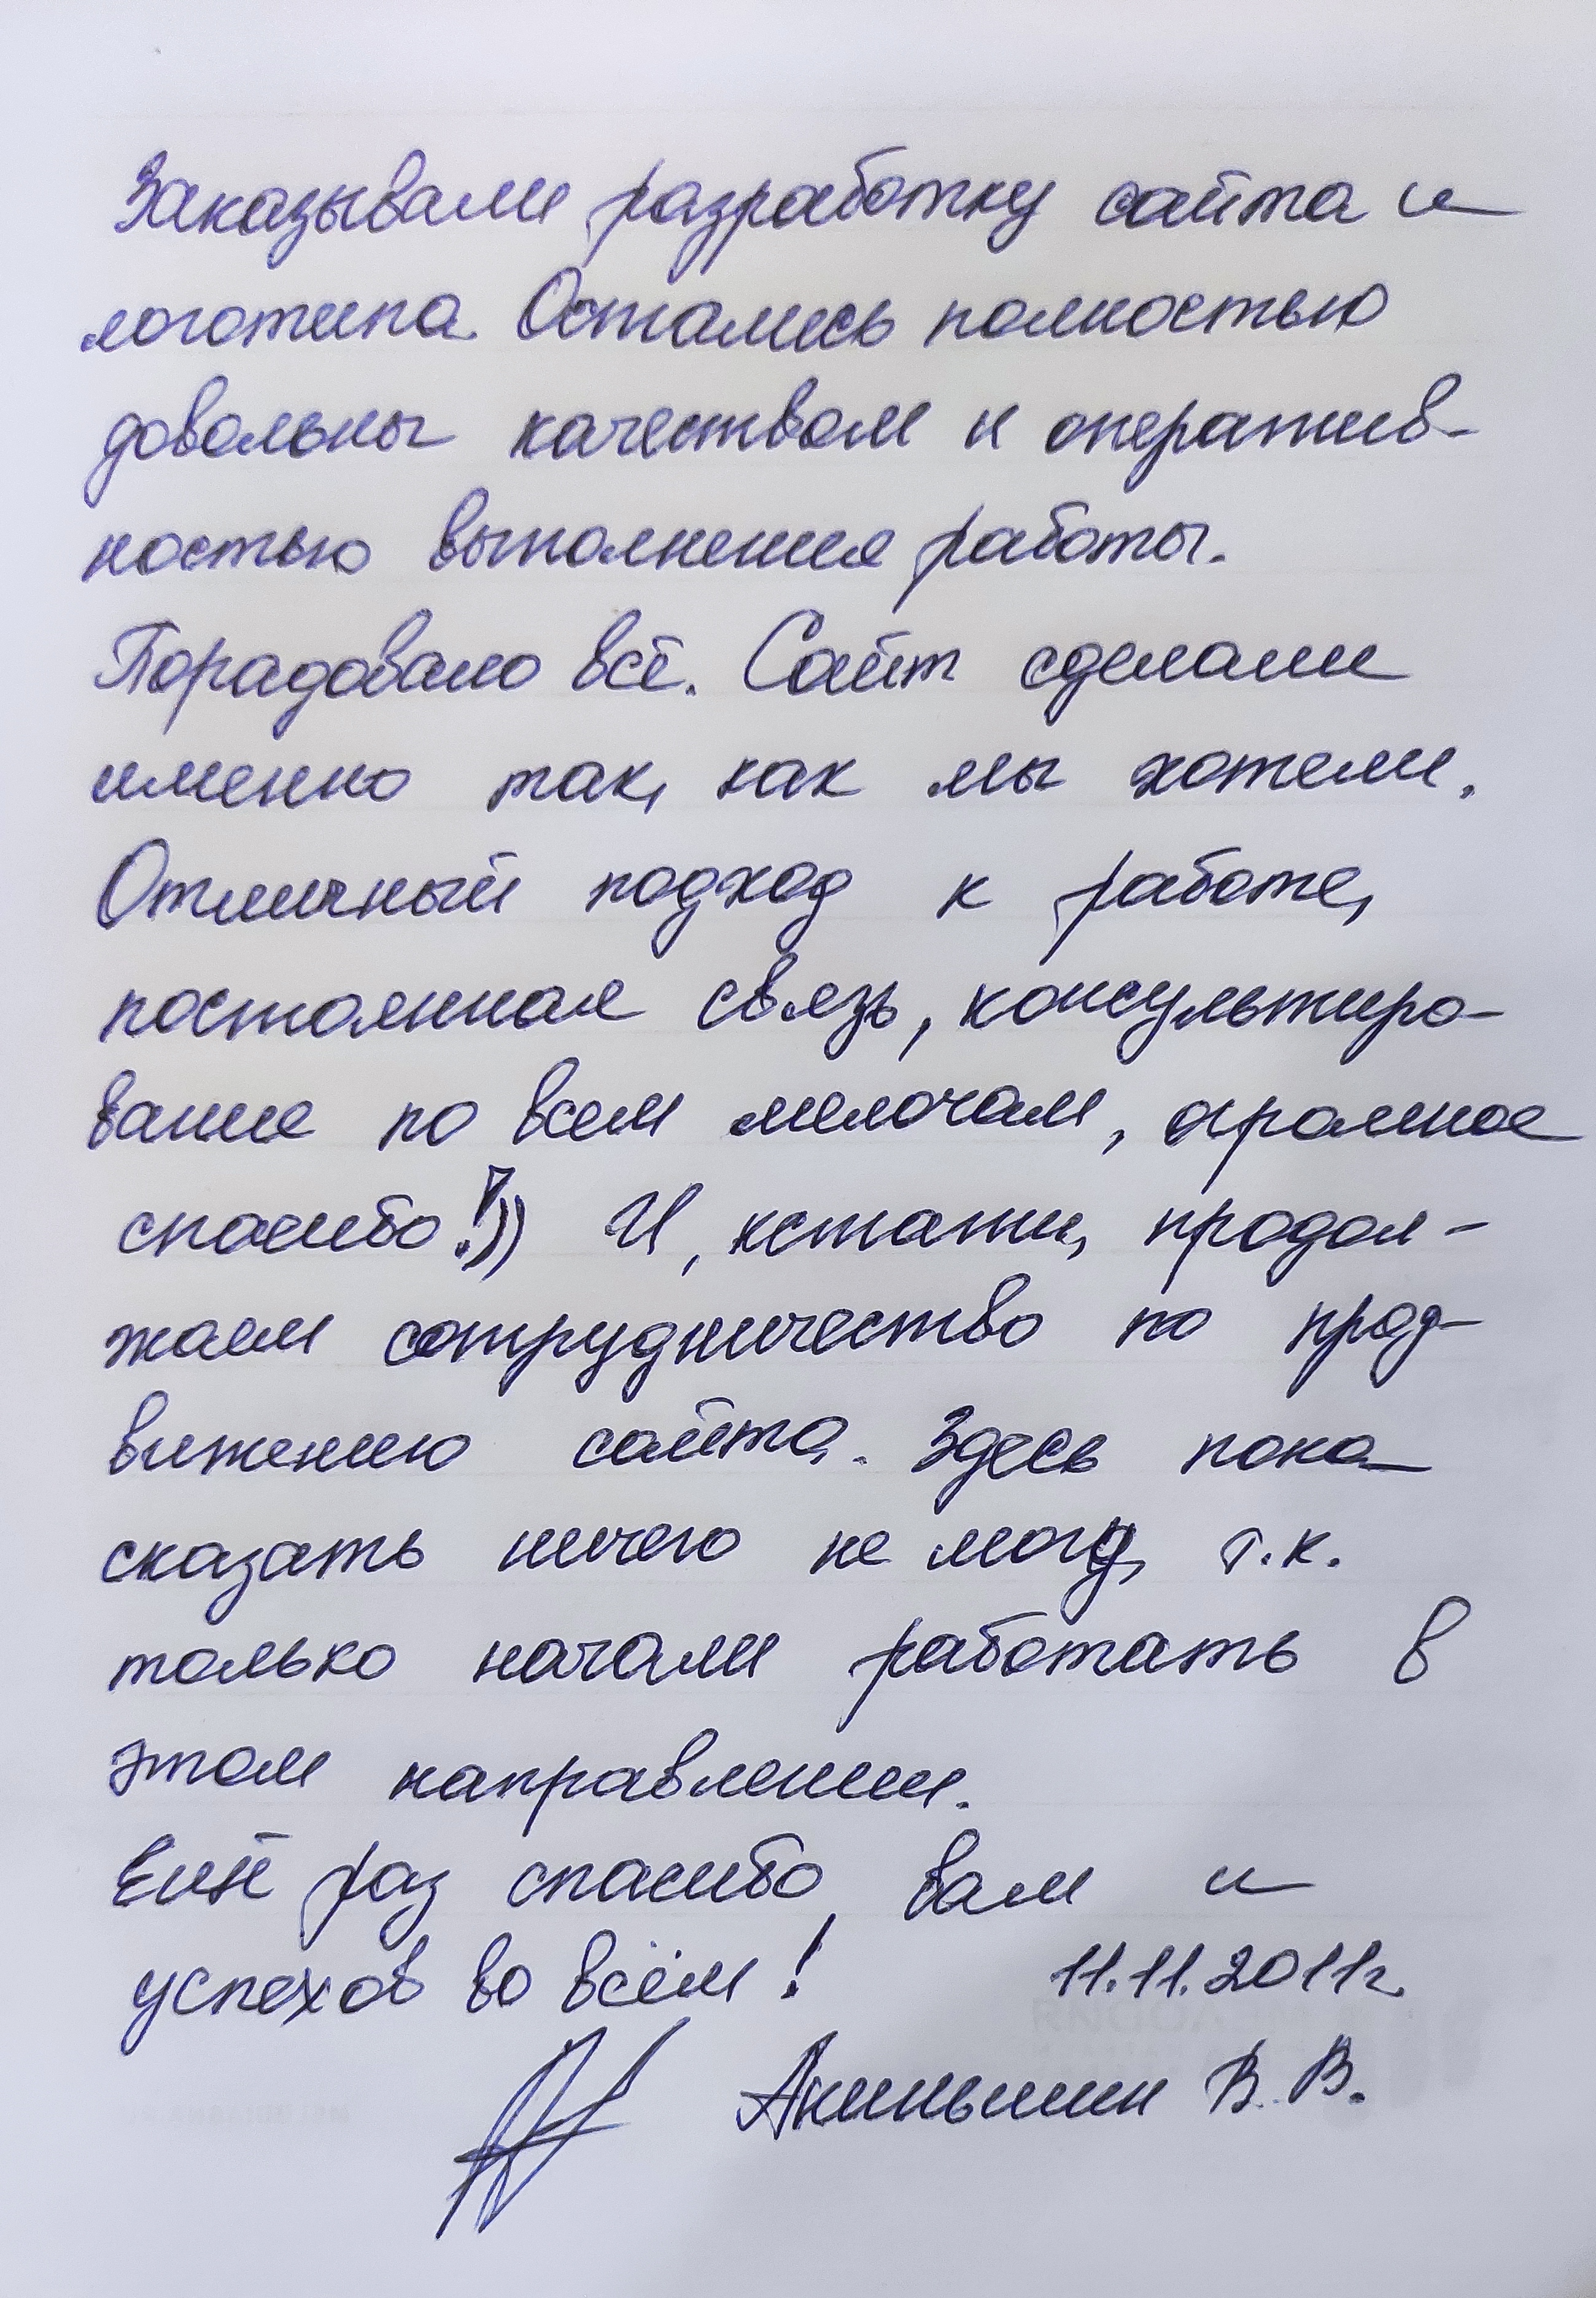 Заказывали разработку сайта и
логотипа. Остались полностью
довольны качеством и оператив-
ностью выполнения работы.
Порадовало всё. Сайт сделали
именно так, как мы хотели.
Отличный подход к работе,
постоянная связь, консультиро-
вание по всем мелочам, огромное
спасибо!)) И, кстати, продол-
жаем сотрудничество по прод-
вижению сайта. Здесь пока
сказать ничего не могу, т.к.
только начали работать в
этом направлении.
Ещё раз спасибо вам и
успехов во всём! 11.11.2011г.
Акиньшин В. В.